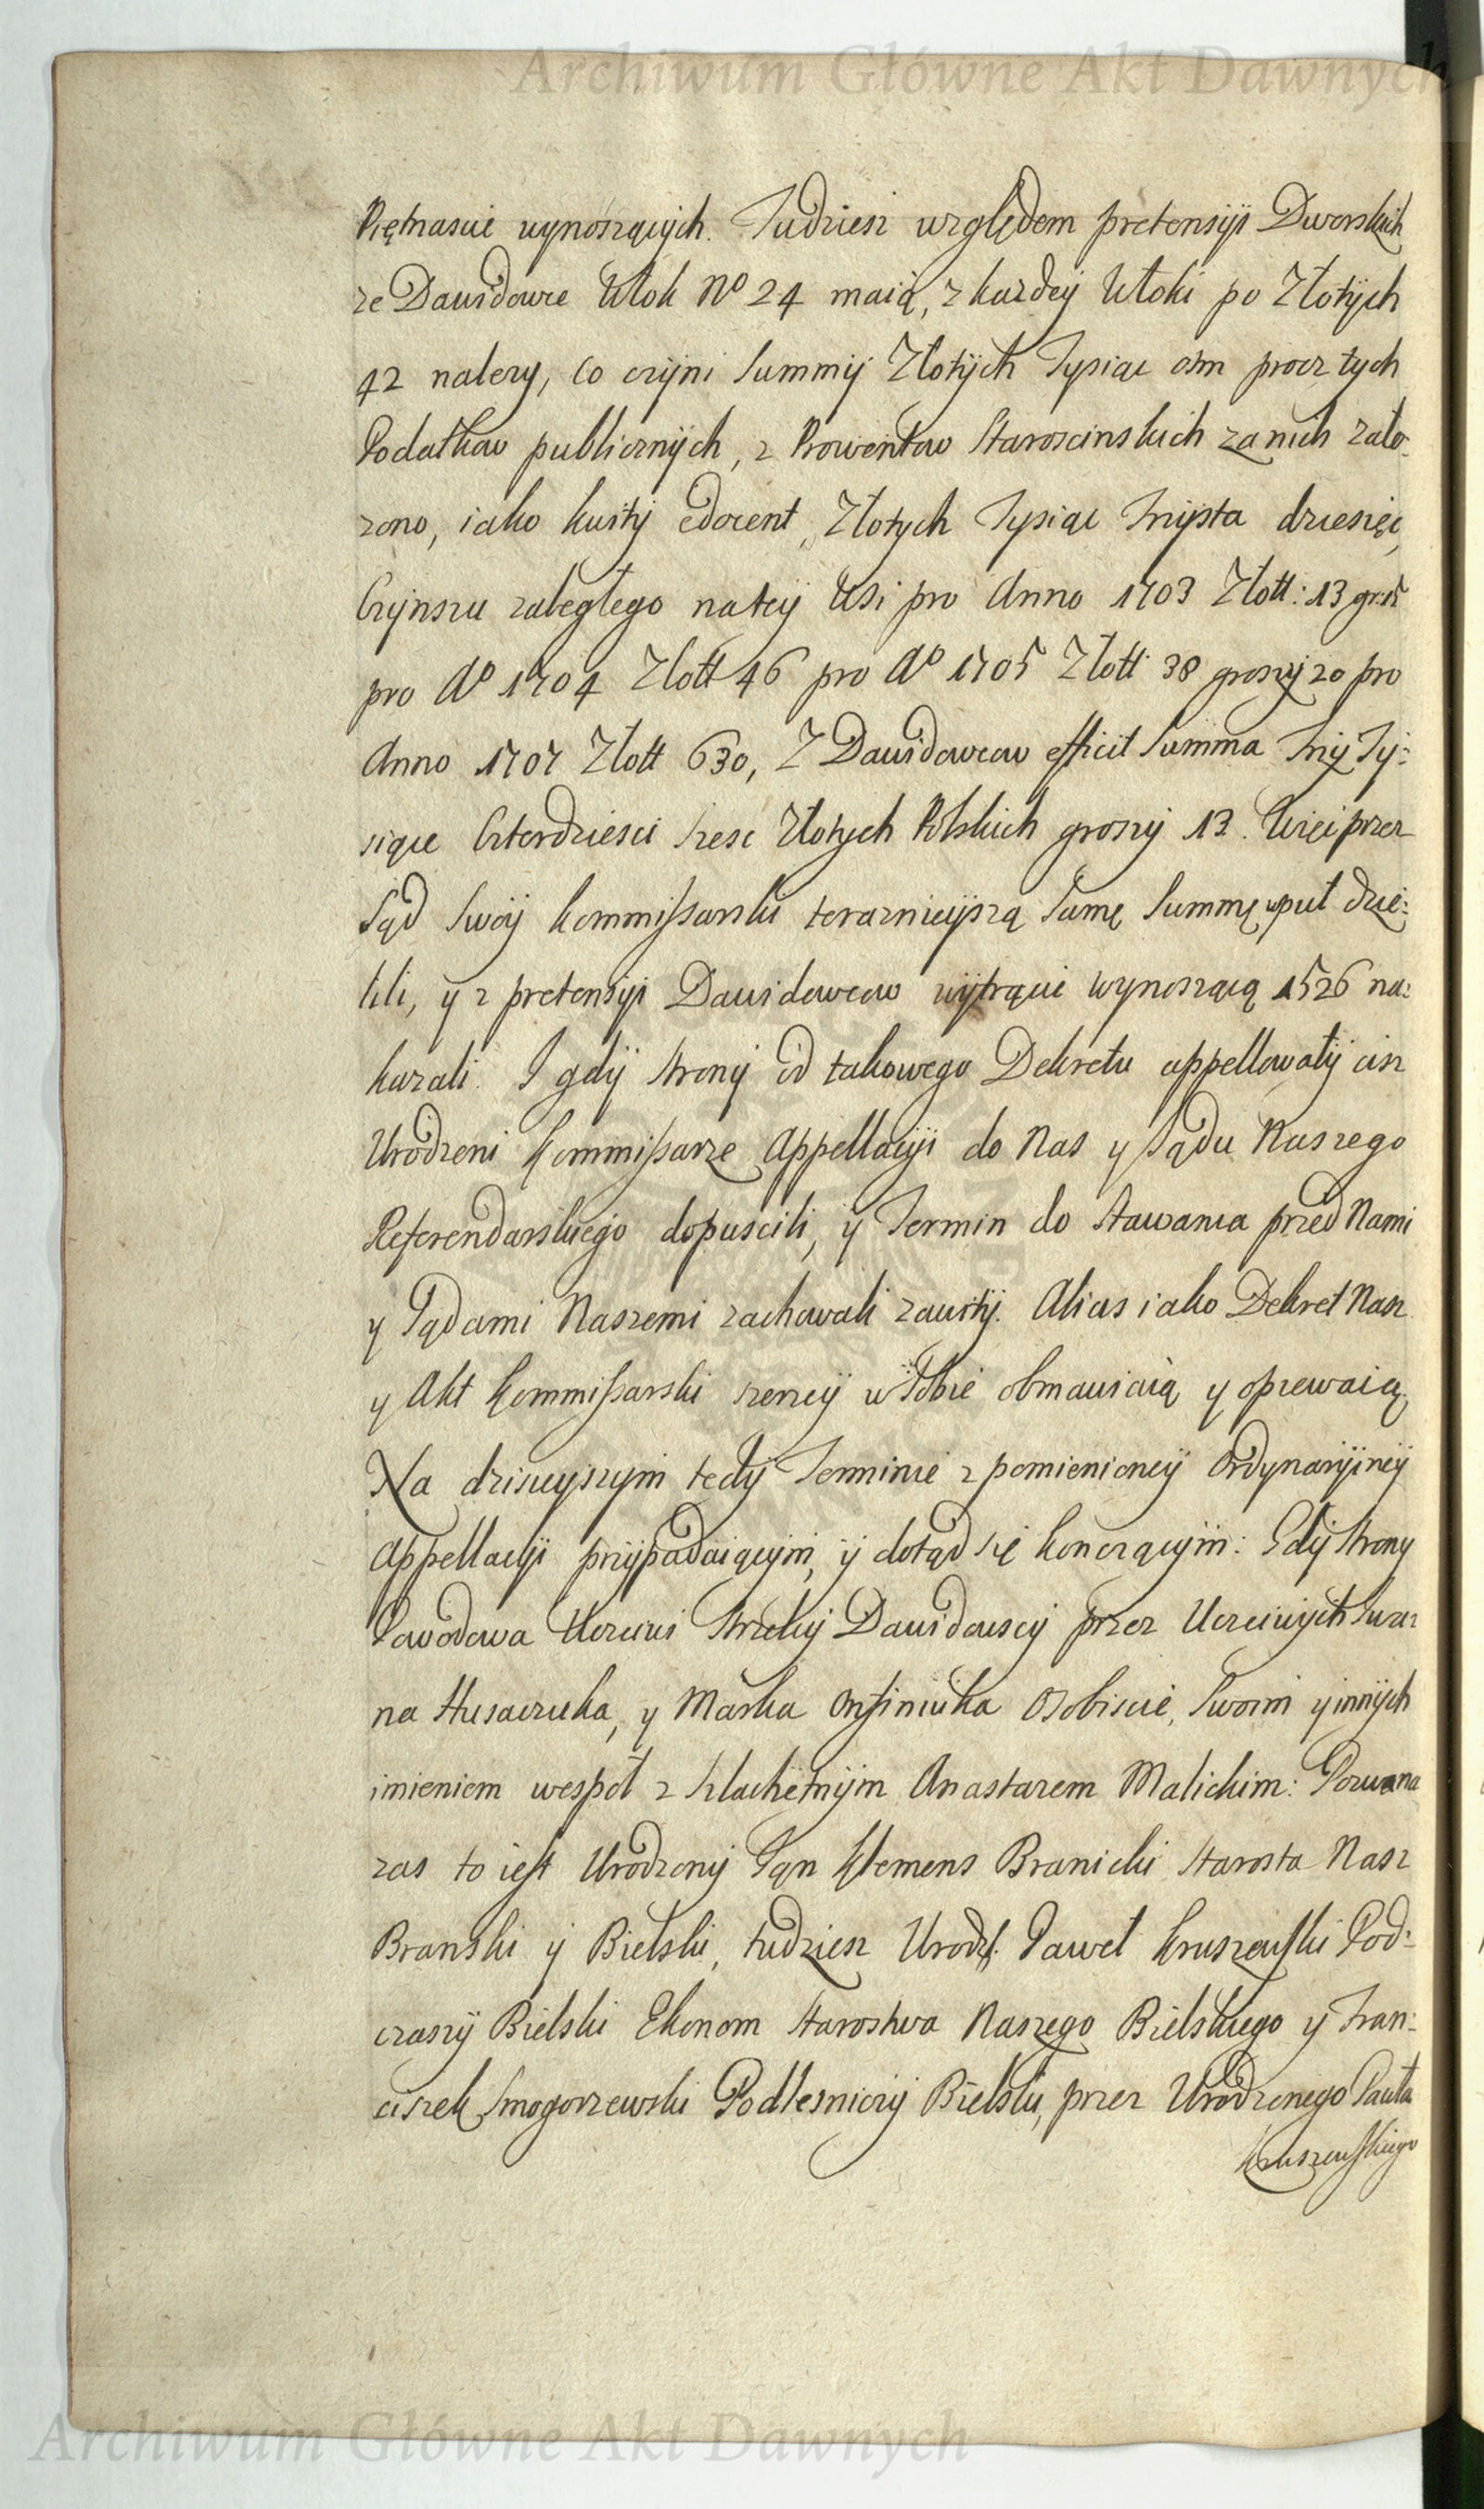 Archiwum Główne Akt Dawnych
Piętnascie wynoszących. Tudziesz względem pretensyi Dworskich
ze Dawidowce Włok No 24 maią, z kazdey Włoki po Złotych
42 nalezy, co czyni Summy Złotych Tysiąc osm procz tych
Podatkow publicznych, z Prowentow Staroscinskich za nich zało-
zono, iako kwity edocent, Złotych Tysiąc Trzysta dziesięc,
Czynszu zaległego na tey Wsi pro Anno 1703 Złott: 13 gr:
pro Ao 1704 Zlott 46 pro Ao 1705 Zlott 38 groszy 20 pro
Anno 1707 Zlott 630, Z Dawidowcow efficit Summa Trzy Ty:
siące Czterdziesci szesc Złotych Polskich groszy 13. Więc przez
Sąd Swoy Kommissarski terazniejszą Samę Summę wpuł dzie:
lili, y z pretensyi Dawidowcow wytrącic wynoszącą 1526 na:
kazali. I gdy strony od takowego Dekretu appellowały ciz
Urodzeni Kommissarze Appellacyi do Nas y Sądu Naszego
Referendarskiego dopuscili, y Termin do Stawania przed Nami
y Sądami Naszemi zachowali zawity. Alias iako Dekret Nasz
y Akt Kommissarski szerzey w Sobie obmawiaią y opiewaią.
Na dzisieyszym tedy Terminie z pomienioney Ordynaryiney
Appellacyi przypadaiącym, y dotąd się konczącym: Gdy Strony
Powodowa Uczciwi Strzelcy Dawidowscy przez Uczciwych
na Husaczuka, y Marka Onsiniuka Osobiscie, Swoim y innych
imieniem wespoł z Szlachetnym Anastazem Malickim: Pozwana
zas to iest Urodzony Jan Klemens Branicki Starosta Nasz
Branski y Bielski, tudziesz Urodz. Paweł Kruszewski Pod:
czaszy Bielski Ekonom Starostwa Naszego Bielskiego y Fran:
ciszek Smogorzewski Podlesniczy Bielski, przez Urodzonego Pawła
Kruszewskiego
Archiwum Główne Akt Dawnych